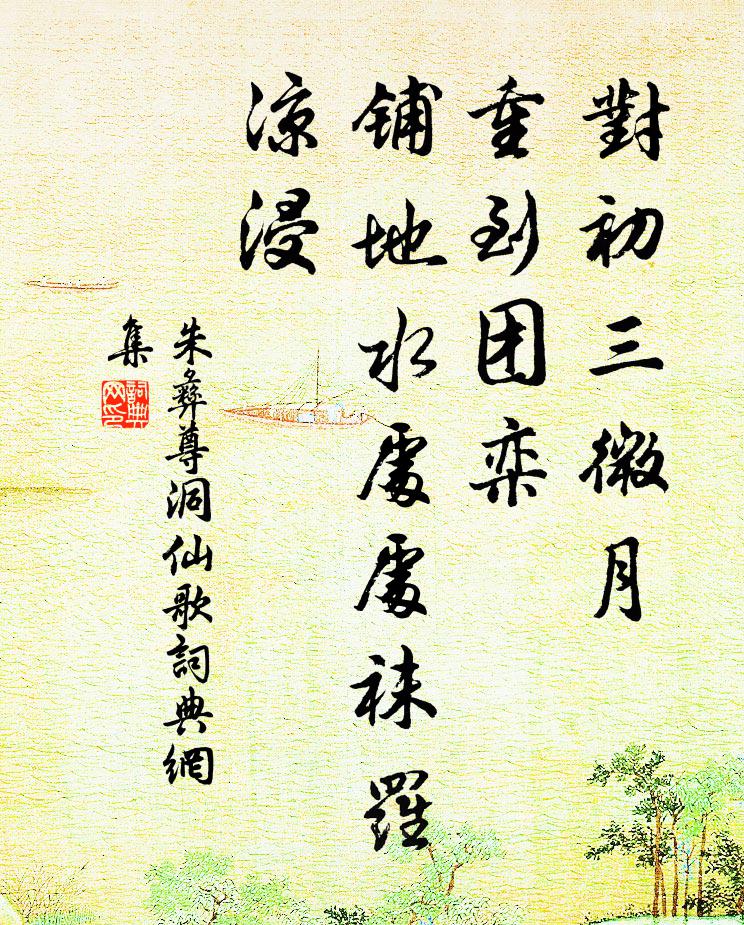 對初三微月
重到团栾
鋪地水處處袜羅
涼浸
朱彝尊洞仙歌詞典網
集
詞典网印